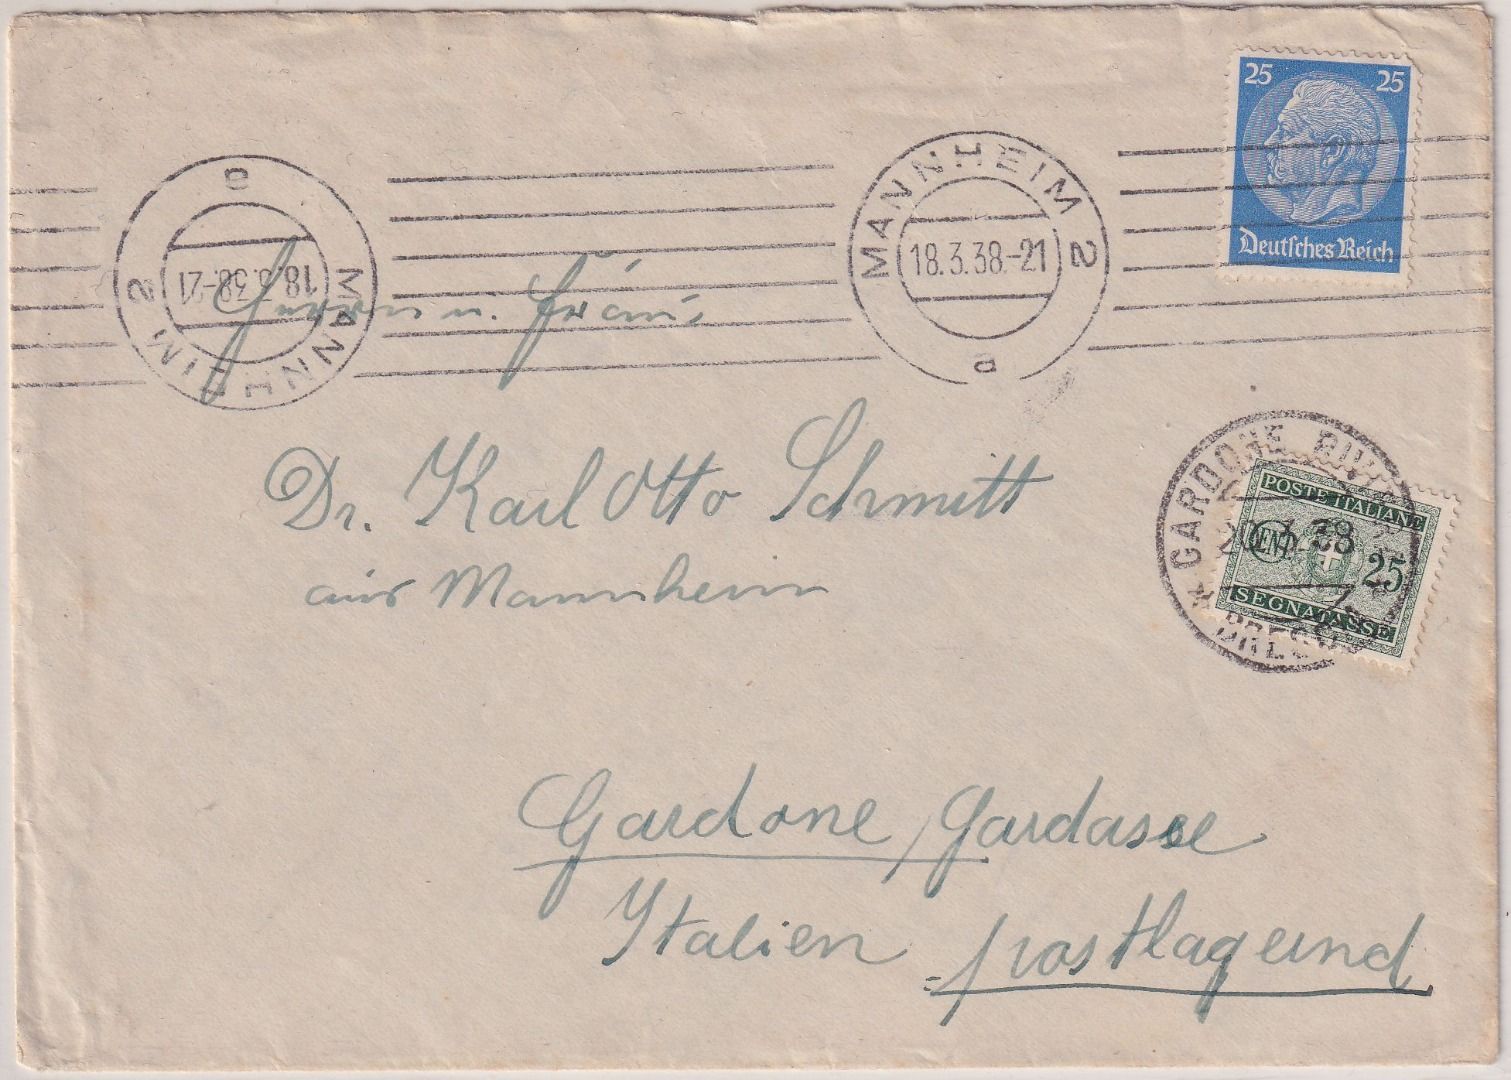 25 25
Deutsches Reich
MANNHEIM 2
18.3.38.-21
a
MANNHEIM 2
18.3.38.-21
a
Herrn u. Frau
Dr. Karl Otto Schmitt
aus Mannheim
GARDONE
20.3.38
POSTE ITALIANE
CENT. 25
SEGNATASSE
Gardone, Gardasee
Italien postlagernd